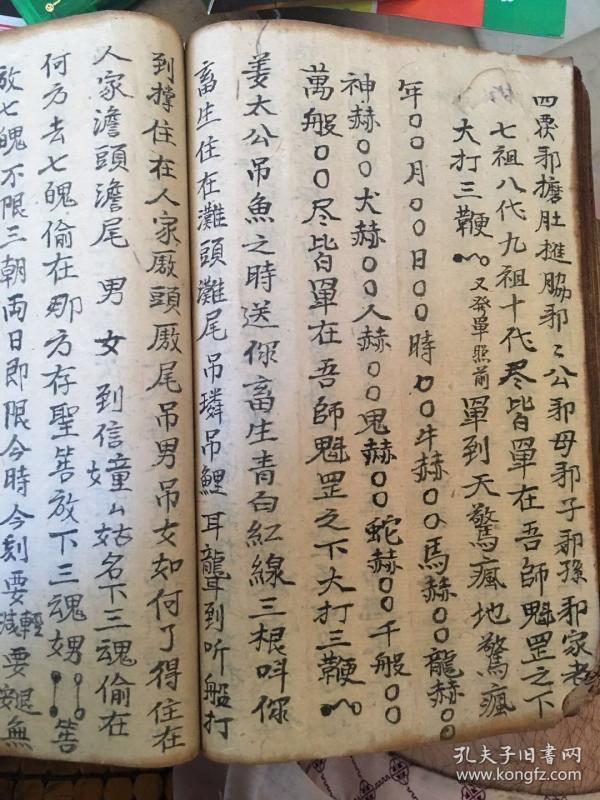 四戾邪擔肚搥脇邪〻公邪母邪子邪孫邪家老
七祖八代九祖十代尽皆單在吾師魁罡之下
大打三鞭 又癹單照前 單到天驚瘋地驚瘋
年〇〇月〇〇日〇〇時〇〇牛赫〇〇馬赫〇〇龍赫〇〇
神赫〇〇犬赫〇〇人赫〇〇鬼赫〇〇蛇赫〇〇千般〇〇
萬般〇〇尽皆單在吾師魁罡之下大打三鞭
姜太公吊魚之時送你畜生青白紅線三根呌你
畜生住在灘頭灘尾吊璘吊鯉耳聾到听盤打
到撑住在人家厫頭厫尾吊男吊女如何了得住在
人家澹頭澹尾 男 女 到信童女厶姑名下三魂偷在
何方去七魄偷在那方存聖筶放下三魂娚 筶
放七魄不限三朝両日即限今時今刻要輕減要退無
孔夫子旧書网
www.kongfz.com